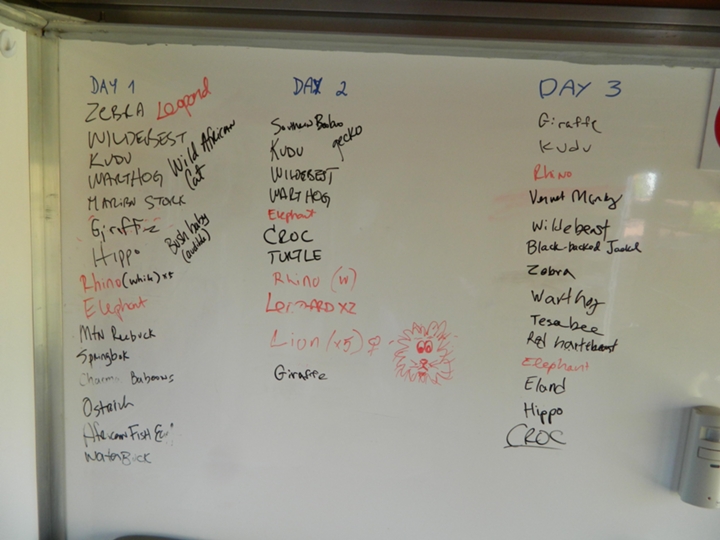 DAY 1
ZEBRA Leopord
WILDEBEST
KUDU
WARTHOG
Wild African
Cat
MARIBN STORK
Giraffe
Hippo
Bush baby
(audible)
Rhino (white) x5
Elephant
Mtn Reebuck
Springbok
Chacma Baboons
Ostrich
AFRICAN FISH
WATERBUCK
DAY 2
Southern Baboo
gecko
KUDU
WILDEBEST
WARTHOG
Elephant
CROC
TURTLE
Rhino (w)
LEOPARD X2
Lion (x5) ♀
Giraffe
DAY 3
Giraffe
Kudu
Rhino
Vervet Monkey
Wildebeast
Black-backed Jackal
Zebra
Warthog
Tesabee
Red hartebeast
Elephant
Eland
Hippo
CROC